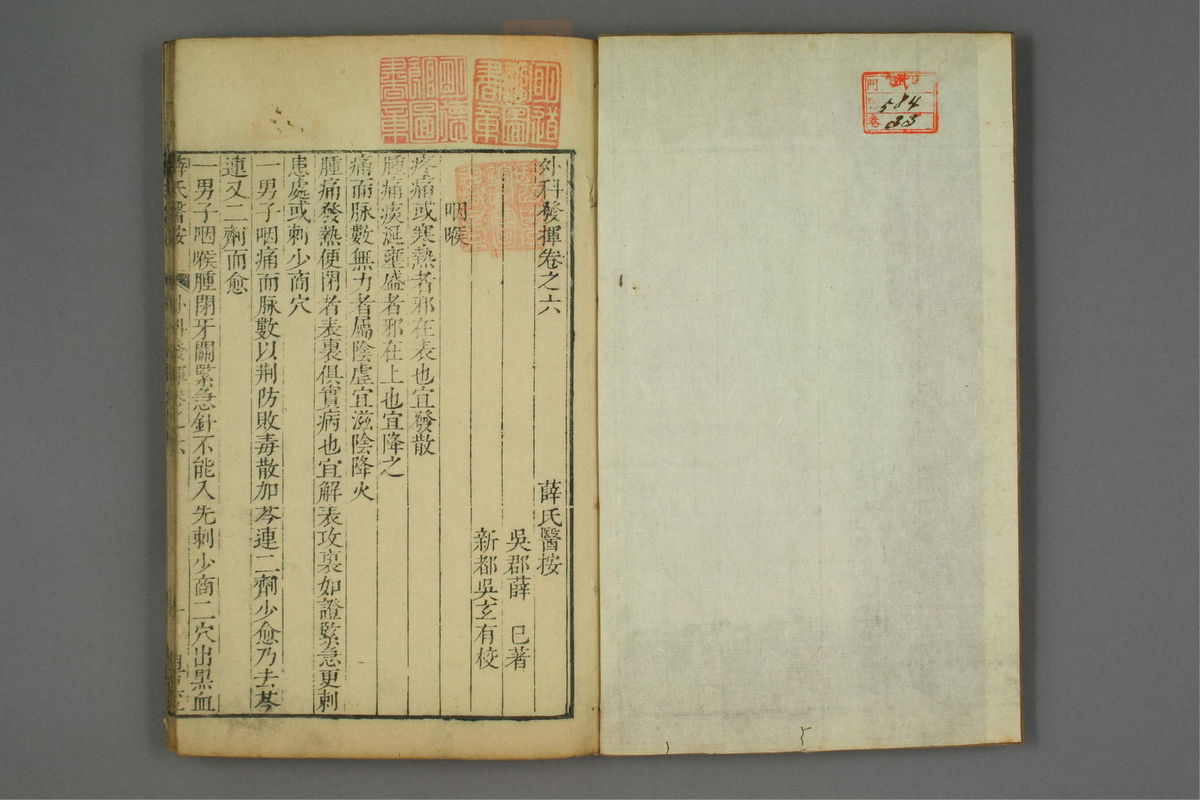 門 號
584
卷 33
外科發揮卷之六 薛氏醫按
吳郡薛 己著
新都吳玄有校
咽喉
疼痛或寒熱者邪在表也宜發散
腫痛痰涎壅盛者邪在上也宜降之
痛而脉數無力者屬陰虛宜滋陰降火
腫痛發熱便閉者表裏俱實病也宜解表攻裏如證緊急更刺
患處或刺少商穴
一男子咽痛而脉數以荊防敗毒散加芩連二劑少愈乃去芩
連又二劑而愈
一男子咽喉腫閉牙關緊急針不能入先刺少商二穴出黑血
薛氏醫按 外科發揮卷之六 一